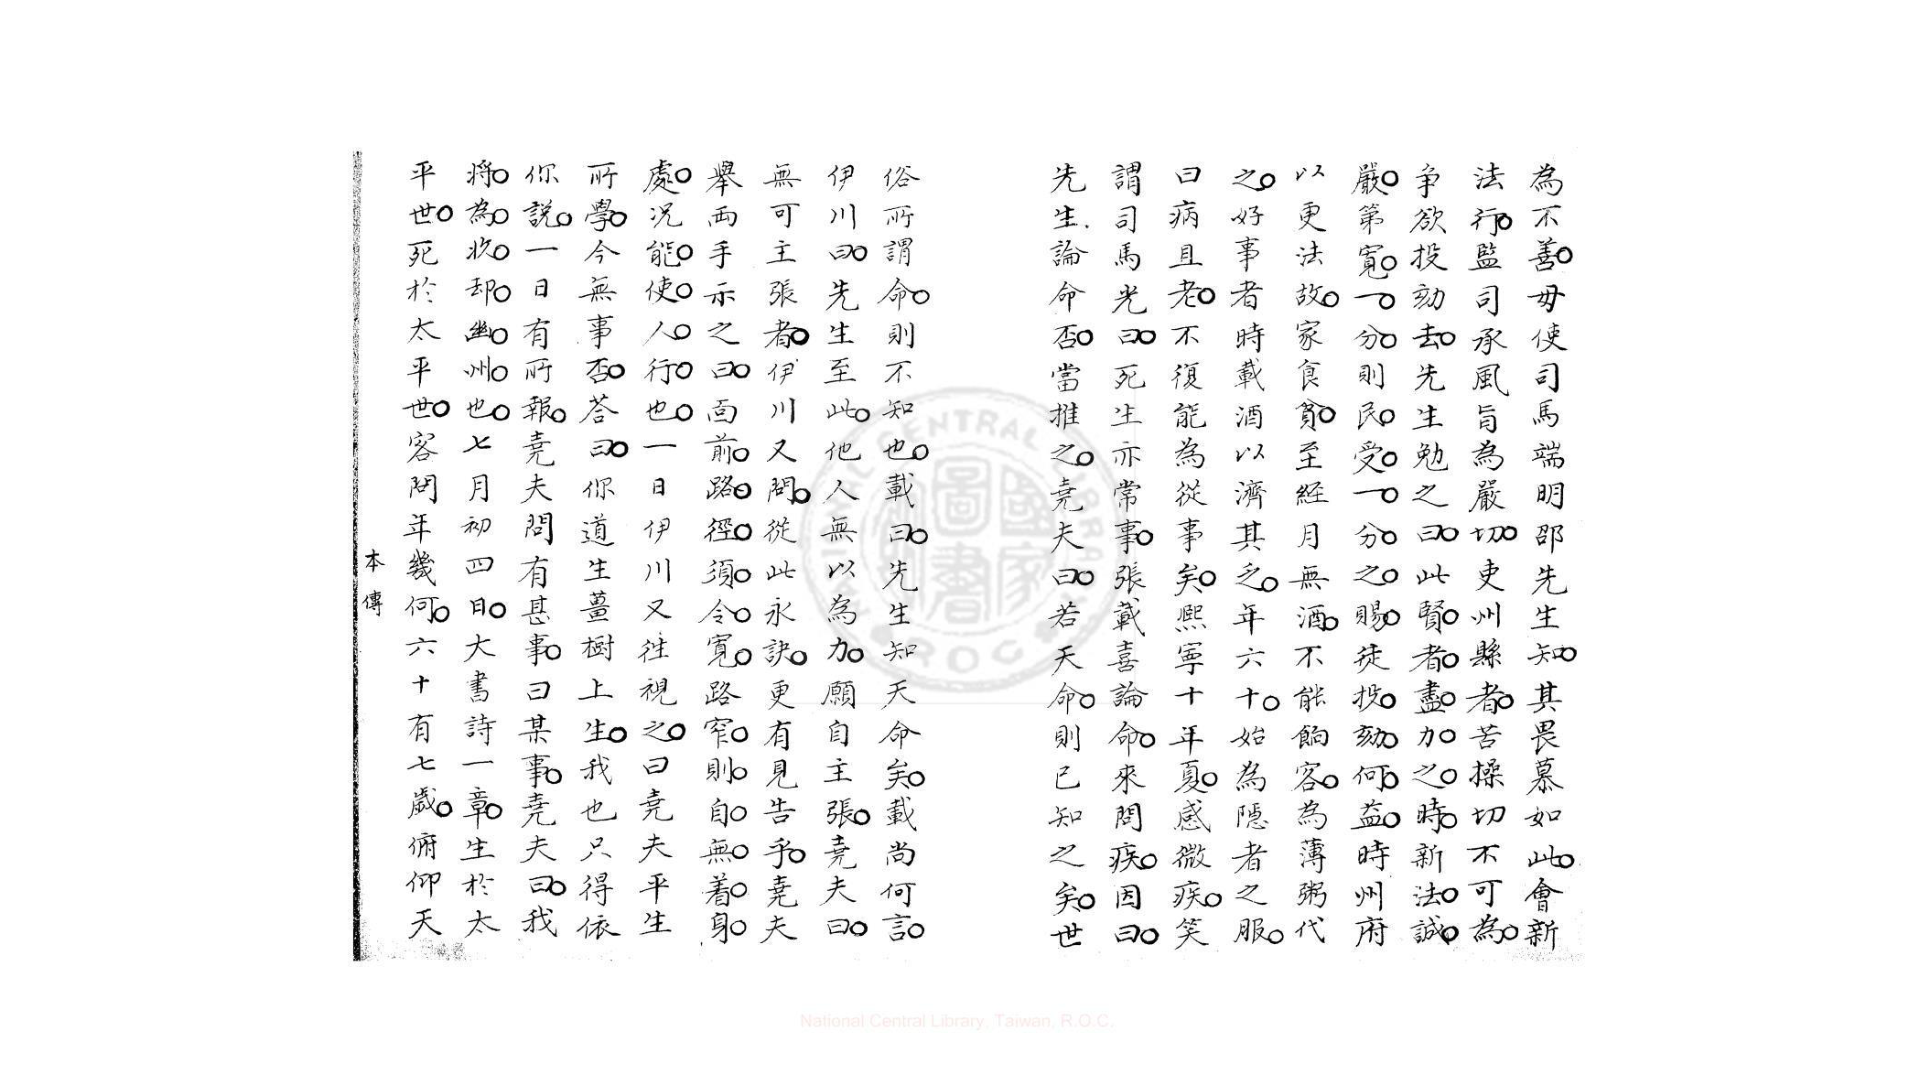 為不善毋使司馬端明邵先生知其畏慕如此會新
法行監司承風旨為嚴切吏州縣者苦操切不可為
争欲投劾去先生勉之曰此賢者盡力之時新法誠
嚴第寬一分則民受一分之賜徒投劾何益時州府
以更法故家食貧至經月無酒不能餉客為薄粥代
之好事者時載酒以濟其乏年六十始為隱者之服
曰病且老不復能為從事矣熙寧十年夏感微疾笑
謂司馬光曰死生亦常事張載喜論命來問疾因曰
先生論命否當推之堯夫曰若天命則已知之矣世
俗所謂命則不知也載曰先生知天命矣載尚何言
伊川曰先生至此他人無以為力願自主張堯夫曰
無可主張者伊川又問從此永訣更有見告乎堯夫
舉兩手示之曰面前路徑須令寬路窄則自無着身
處况能使人行也一日伊川又徃視之曰堯夫平生
所學今無事否荅曰你道生薑樹上生我也只得依
你說一日有所報堯夫問有甚事曰某事堯夫曰我
將為收却幽州也七月初四日大書詩一章生於太
平世死於太平世客問年幾何六十有七歲俯仰天
本傳
National Central Library, Taiwan, R.O.C.
NATIONAL CENTRAL LIBRARY
R.O.C
國家圖書館